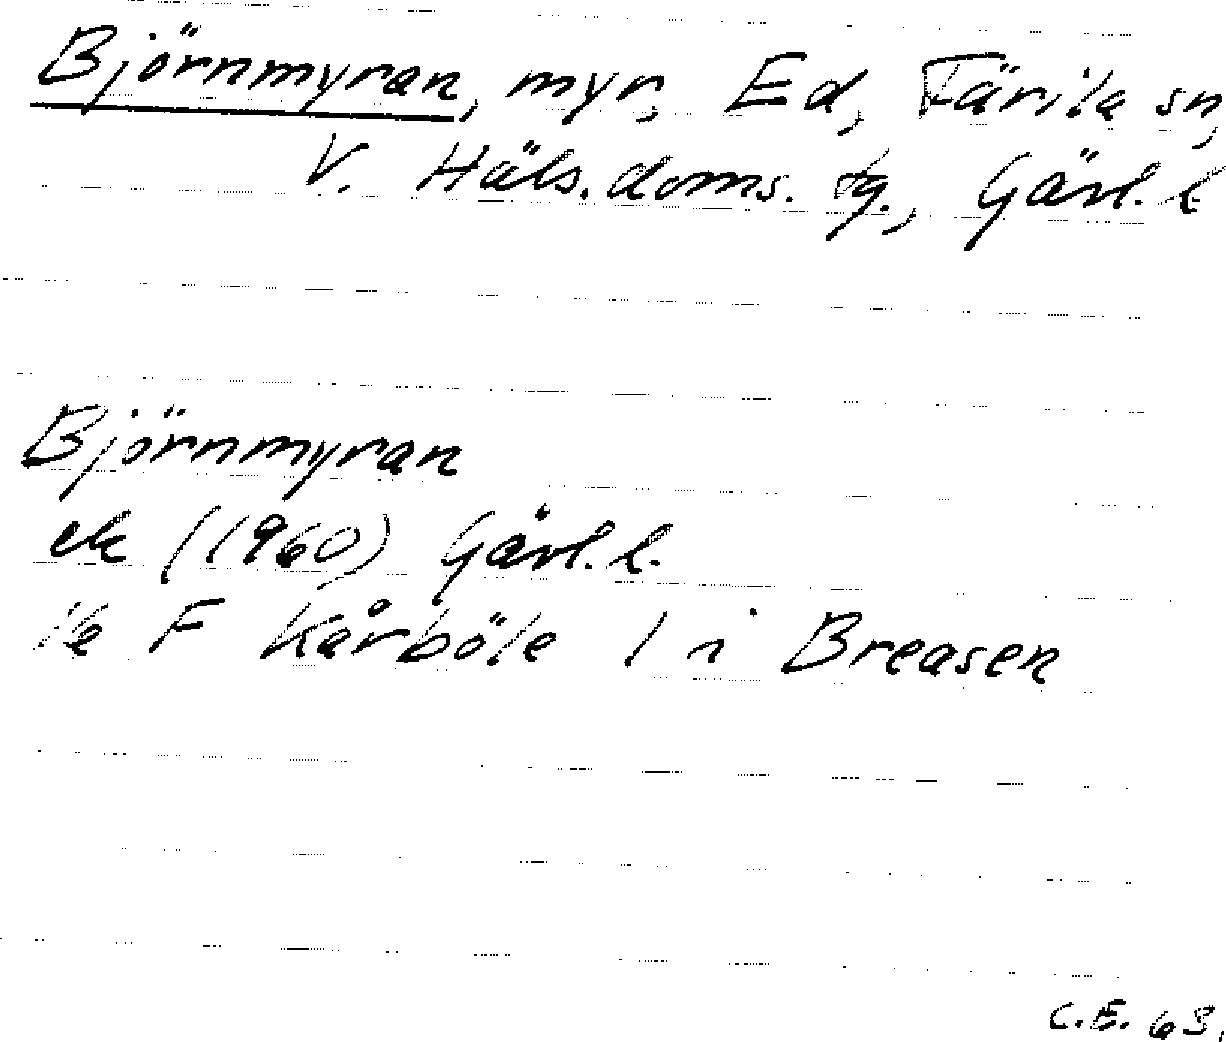 Björnmyran, myr, Ed, Färila sn,
V. Häls. doms. tg., Gävl. l
Björnmyran
ek (1960) Gävl. l.
F Kårböle 1 i Breasen
C.E. 63.